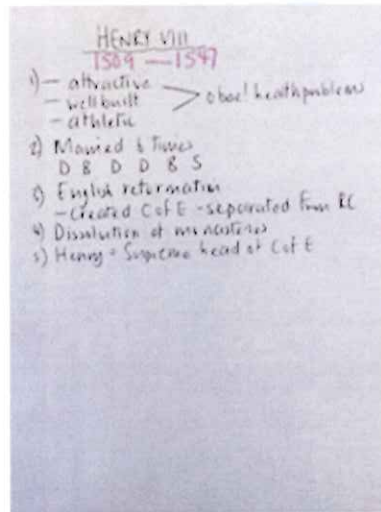 HENRY VIII
1509 — 1547
1) – attractive
– well built
– athletic
> obese! health problems
2) Married 6 Times
D B D D B S
3) English reformation
– Created C of E – separated from RC
4) Dissolution of monasteries
5) Henry = Supreme head of C of E